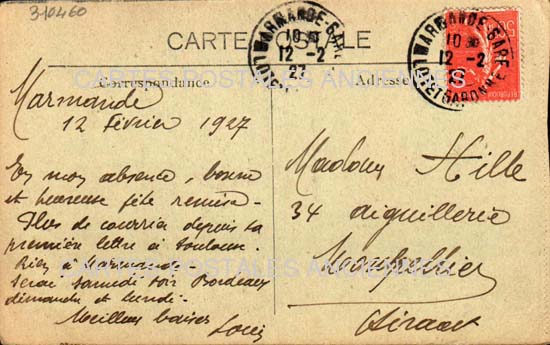 310460
CARTE POSTALE
Correspondance
Adresse
MARMANDE-GARE
10 30
12 -2
27
LOT-ET-GARONNE
MARMANDE-GARE
10 30
12 -2
27
LOT-ET-GARONNE
50
CARTES POSTALES ANCIENNES
Marmande
12 Février 1927
En mon absence, bonne
et heureuse fête remise.
Plus de courrier depuis ta
première lettre à Toulouse.
Rien à Marmande.
Serai samedi soir Bordeaux
dimanche et lundi.
Meilleurs baisers
Louis
Madame Hille
34 aiguillerie
Montpellier
Hérault
CARTES POSTALES ANCIENNES